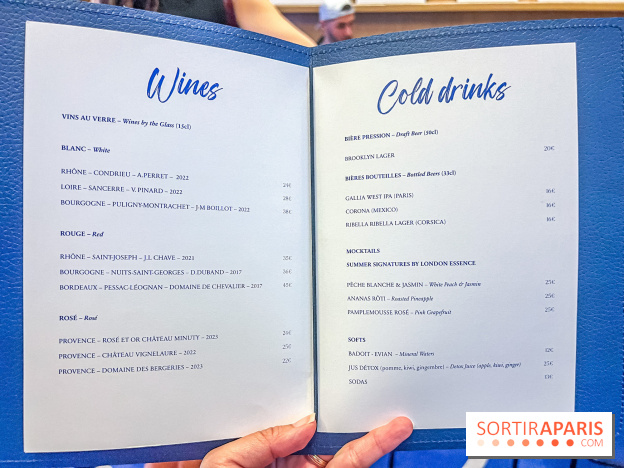 Wines
VINS AU VERRE – Wines by the Glass (15cl)
BLANC – White
RHÔNE – CONDRIEU – A.PERRET – 2022
24€
LOIRE – SANCERRE – V. PINARD – 2022
28€
BOURGOGNE – PULIGNY-MONTRACHET – J-M BOILLOT – 2022
38€
ROUGE – Red
RHÔNE – SAINT-JOSEPH – J.L CHAVE – 2021
35€
BOURGOGNE – NUITS-SAINT-GEORGES – D.DURAND – 2017
36€
BORDEAUX – PESSAC-LÉOGNAN – DOMAINE DE CHEVALIER – 2017
45€
ROSÉ – Rosé
PROVENCE – ROSÉ ET OR CHÂTEAU MINUTY – 2023
24€
PROVENCE – CHÂTEAU VIGNELAURE – 2022
25€
PROVENCE – DOMAINE DES BERGERIES – 2023
22€
Cold drinks
BIÈRE PRESSION – Draft Beer (50cl)
BROOKLYN LAGER 20€
BIÈRES BOUTEILLES – Bottled Beers (33cl)
GALLIA WEST IPA (PARIS) 16€
CORONA (MEXICO) 16€
RIBELLA RIBELLA LAGER (CORSICA) 16€
MOCKTAILS
SUMMER SIGNATURES BY LONDON ESSENCE
PÈCHE BLANCHE & JASMIN – White Peach & Jasmin 25€
ANANAS RÔTI – Roasted Pineapple 25€
PAMPLEMOUSSE ROSÉ – Pink Grapefruit 25€
SOFTS
BADOIT - EVIAN – Mineral Waters 12€
JUS DÉTOX (pomme, kiwi, gingembre) – Detox Juice (apple, kiwi, ginger) 25€
SODAS 13€
SORTIRAPARIS
.COM